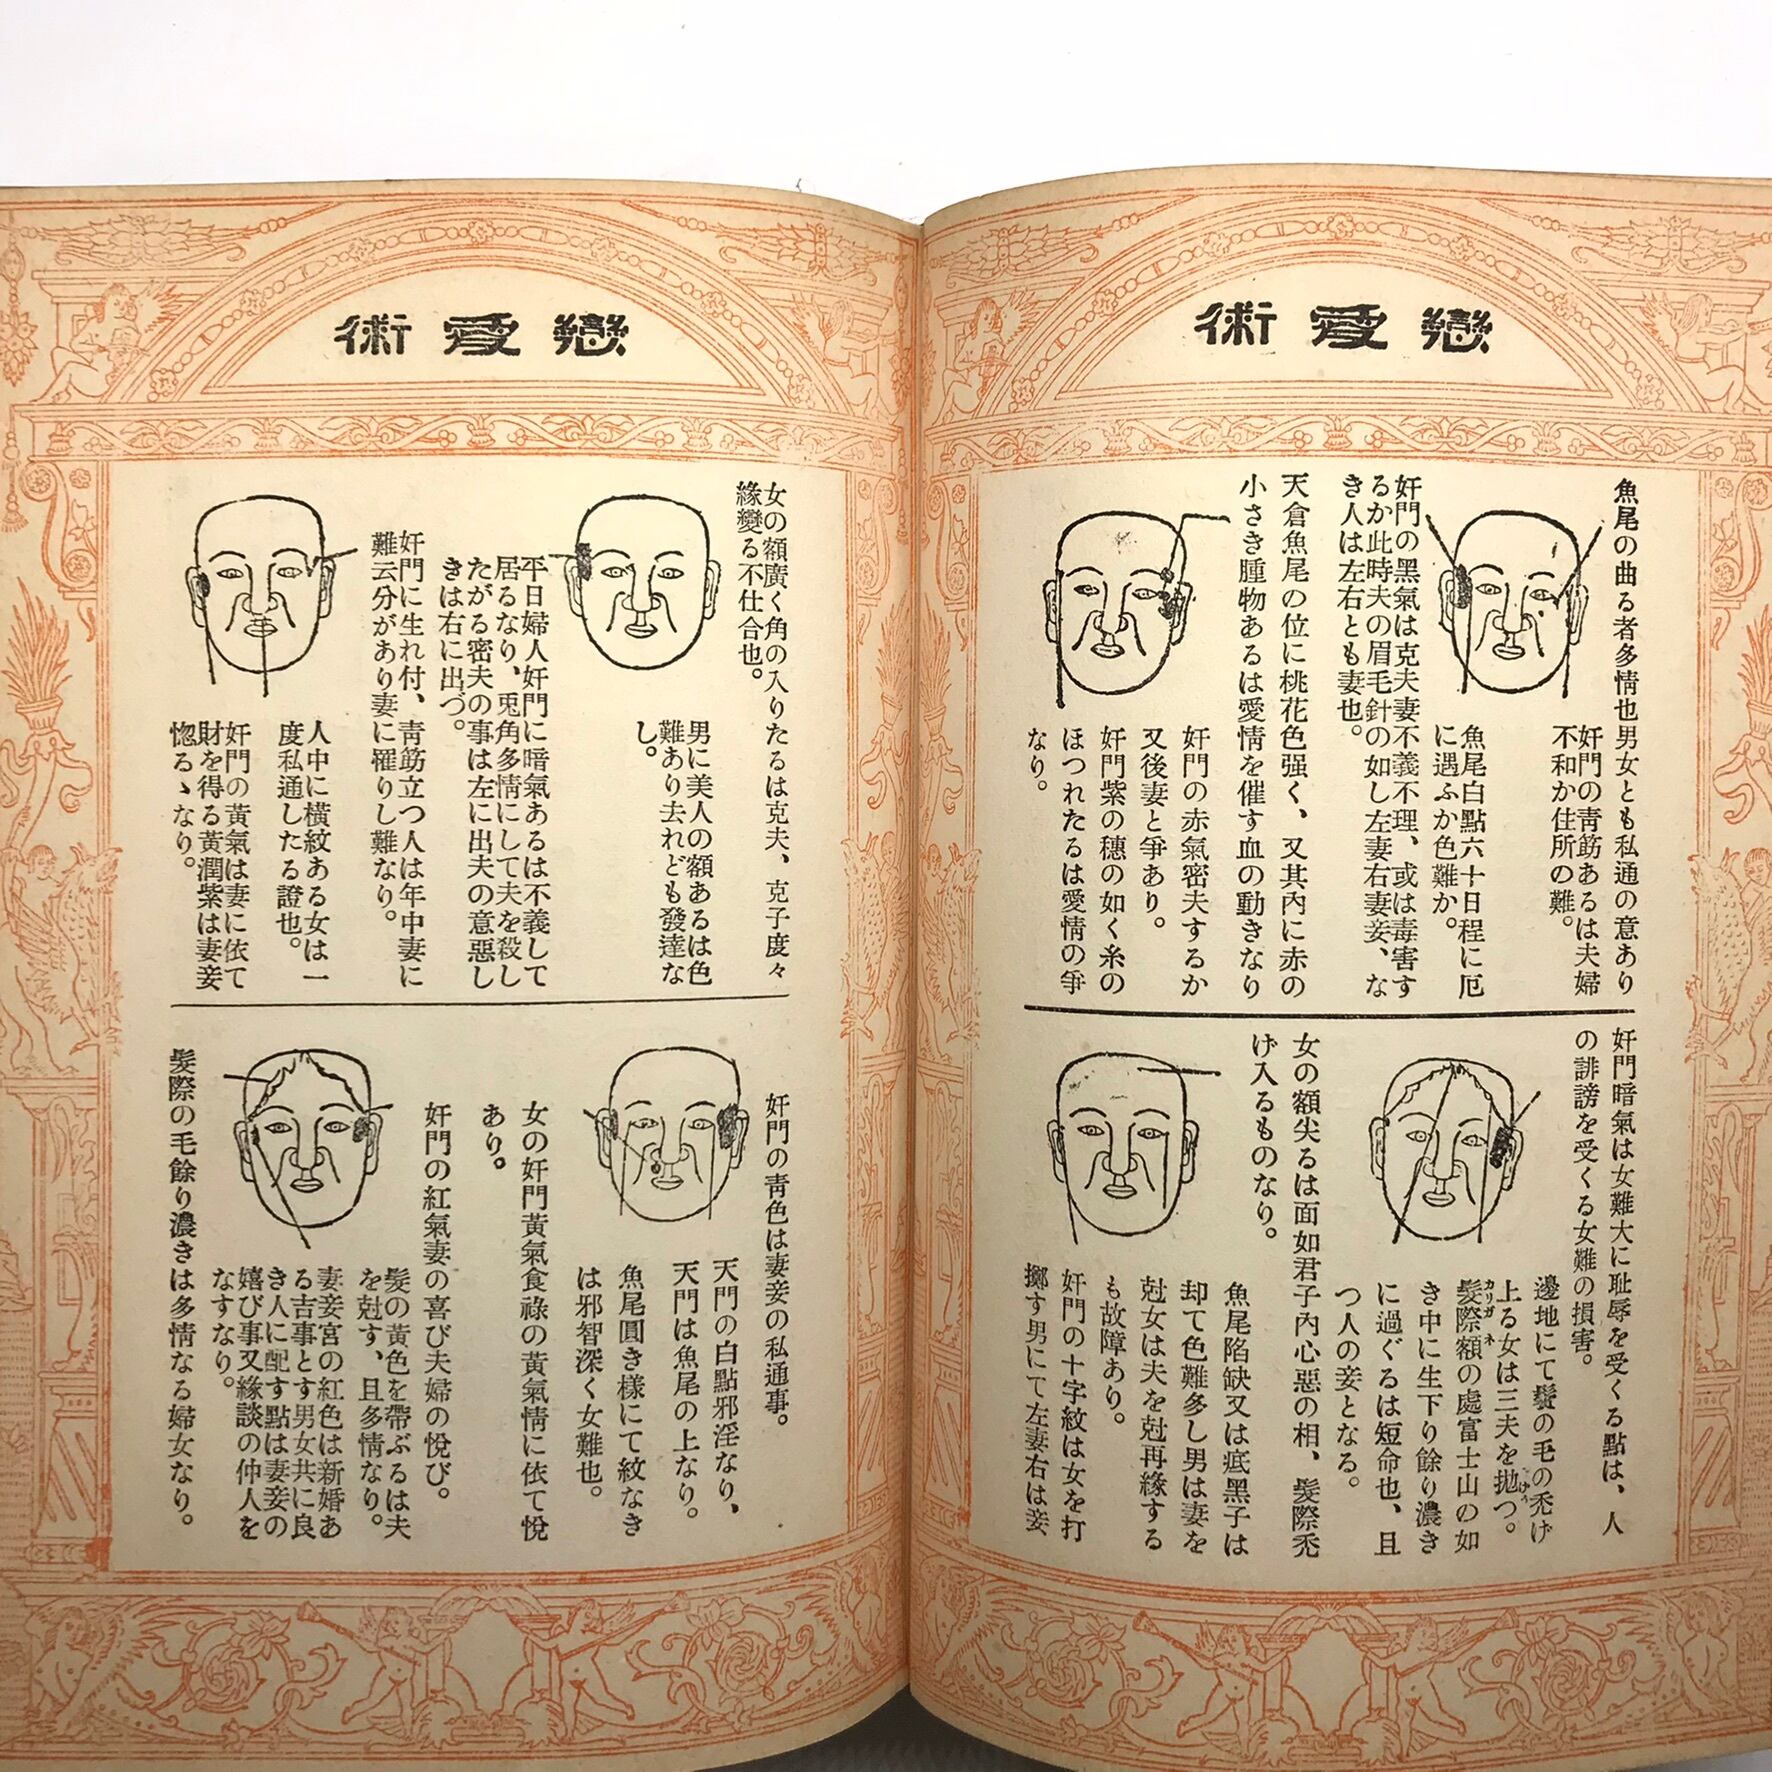 戀愛術
魚尾の曲る者多情也男女とも私通の意あり
奸門の靑筋あるは夫婦
不和か住所の難。
魚尾白點六十日程に厄
に遇ふか色難か。
奸門の黑氣は克夫妻不義不理、或は毒害す
るか此時夫の眉毛針の如し左妻右妻妾、な
き人は左右とも妻也。
天倉魚尾の位に桃花色强く、又其內に赤の
小さき腫物あるは愛情を催す血の動きなり
奸門の赤氣密夫するか
又後妻と爭あり。
奸門紫の穗の如く糸の
ほつれたるは愛情の爭
なり。
奸門暗氣は女難大に耻辱を受くる點は、人
の誹謗を受くる女難の損害。
邊地にて鬢の毛の禿げ
上る女は三夫を拋つ。
髮際額の處富士山の如
き中に生下り餘り濃き
に過ぐるは短命也、且
つ人の妾となる。
女の額尖るは面如君子內心惡の相、髮際禿
げ入るものなり。
魚尾陷缺又は疵黑子は
却て色難多し男は妻を
尅女は夫を尅再緣する
も故障あり。
奸門の十字紋は女を打
擲す男にて左妻右は妾
戀愛術
女の額廣く角の入りたるは克夫、克子度々
緣變る不仕合也。
男に美人の額あるは色
難あり去れども發達な
し。
平日婦人奸門に暗氣あるは不義して
居るなり、兎角多情にして夫を殺し
たがる密夫の事は左に出夫の意惡し
きは右に出づ。
奸門に生れ付、靑筋立つ人は年中妻に
難云分があり妻に罹りし難なり。
人中に橫紋ある女は一
度私通したる證也。
奸門の黃氣は妻に依て
財を得る黃潤紫は妻妾
惚るゝなり。
奸門の靑色は妻妾の私通事。
天門の白點邪淫なり、
天門は魚尾の上なり。
魚尾圓き樣にて紋なき
は邪智深く女難也。
女の奸門黃氣食祿の黃氣情に依て悅
あり。
奸門の紅氣妻の喜び夫婦の悅び。
髮の黃色を帶ぶるは夫
を尅す、且多情なり。
妻妾宮の紅色は新婚あ
る吉事とす男女共に良
き人に配す點は妻妾の
嬉び事又緣談の仲人を
なすなり。
髮際の毛餘り濃きは多情なる婦女なり。